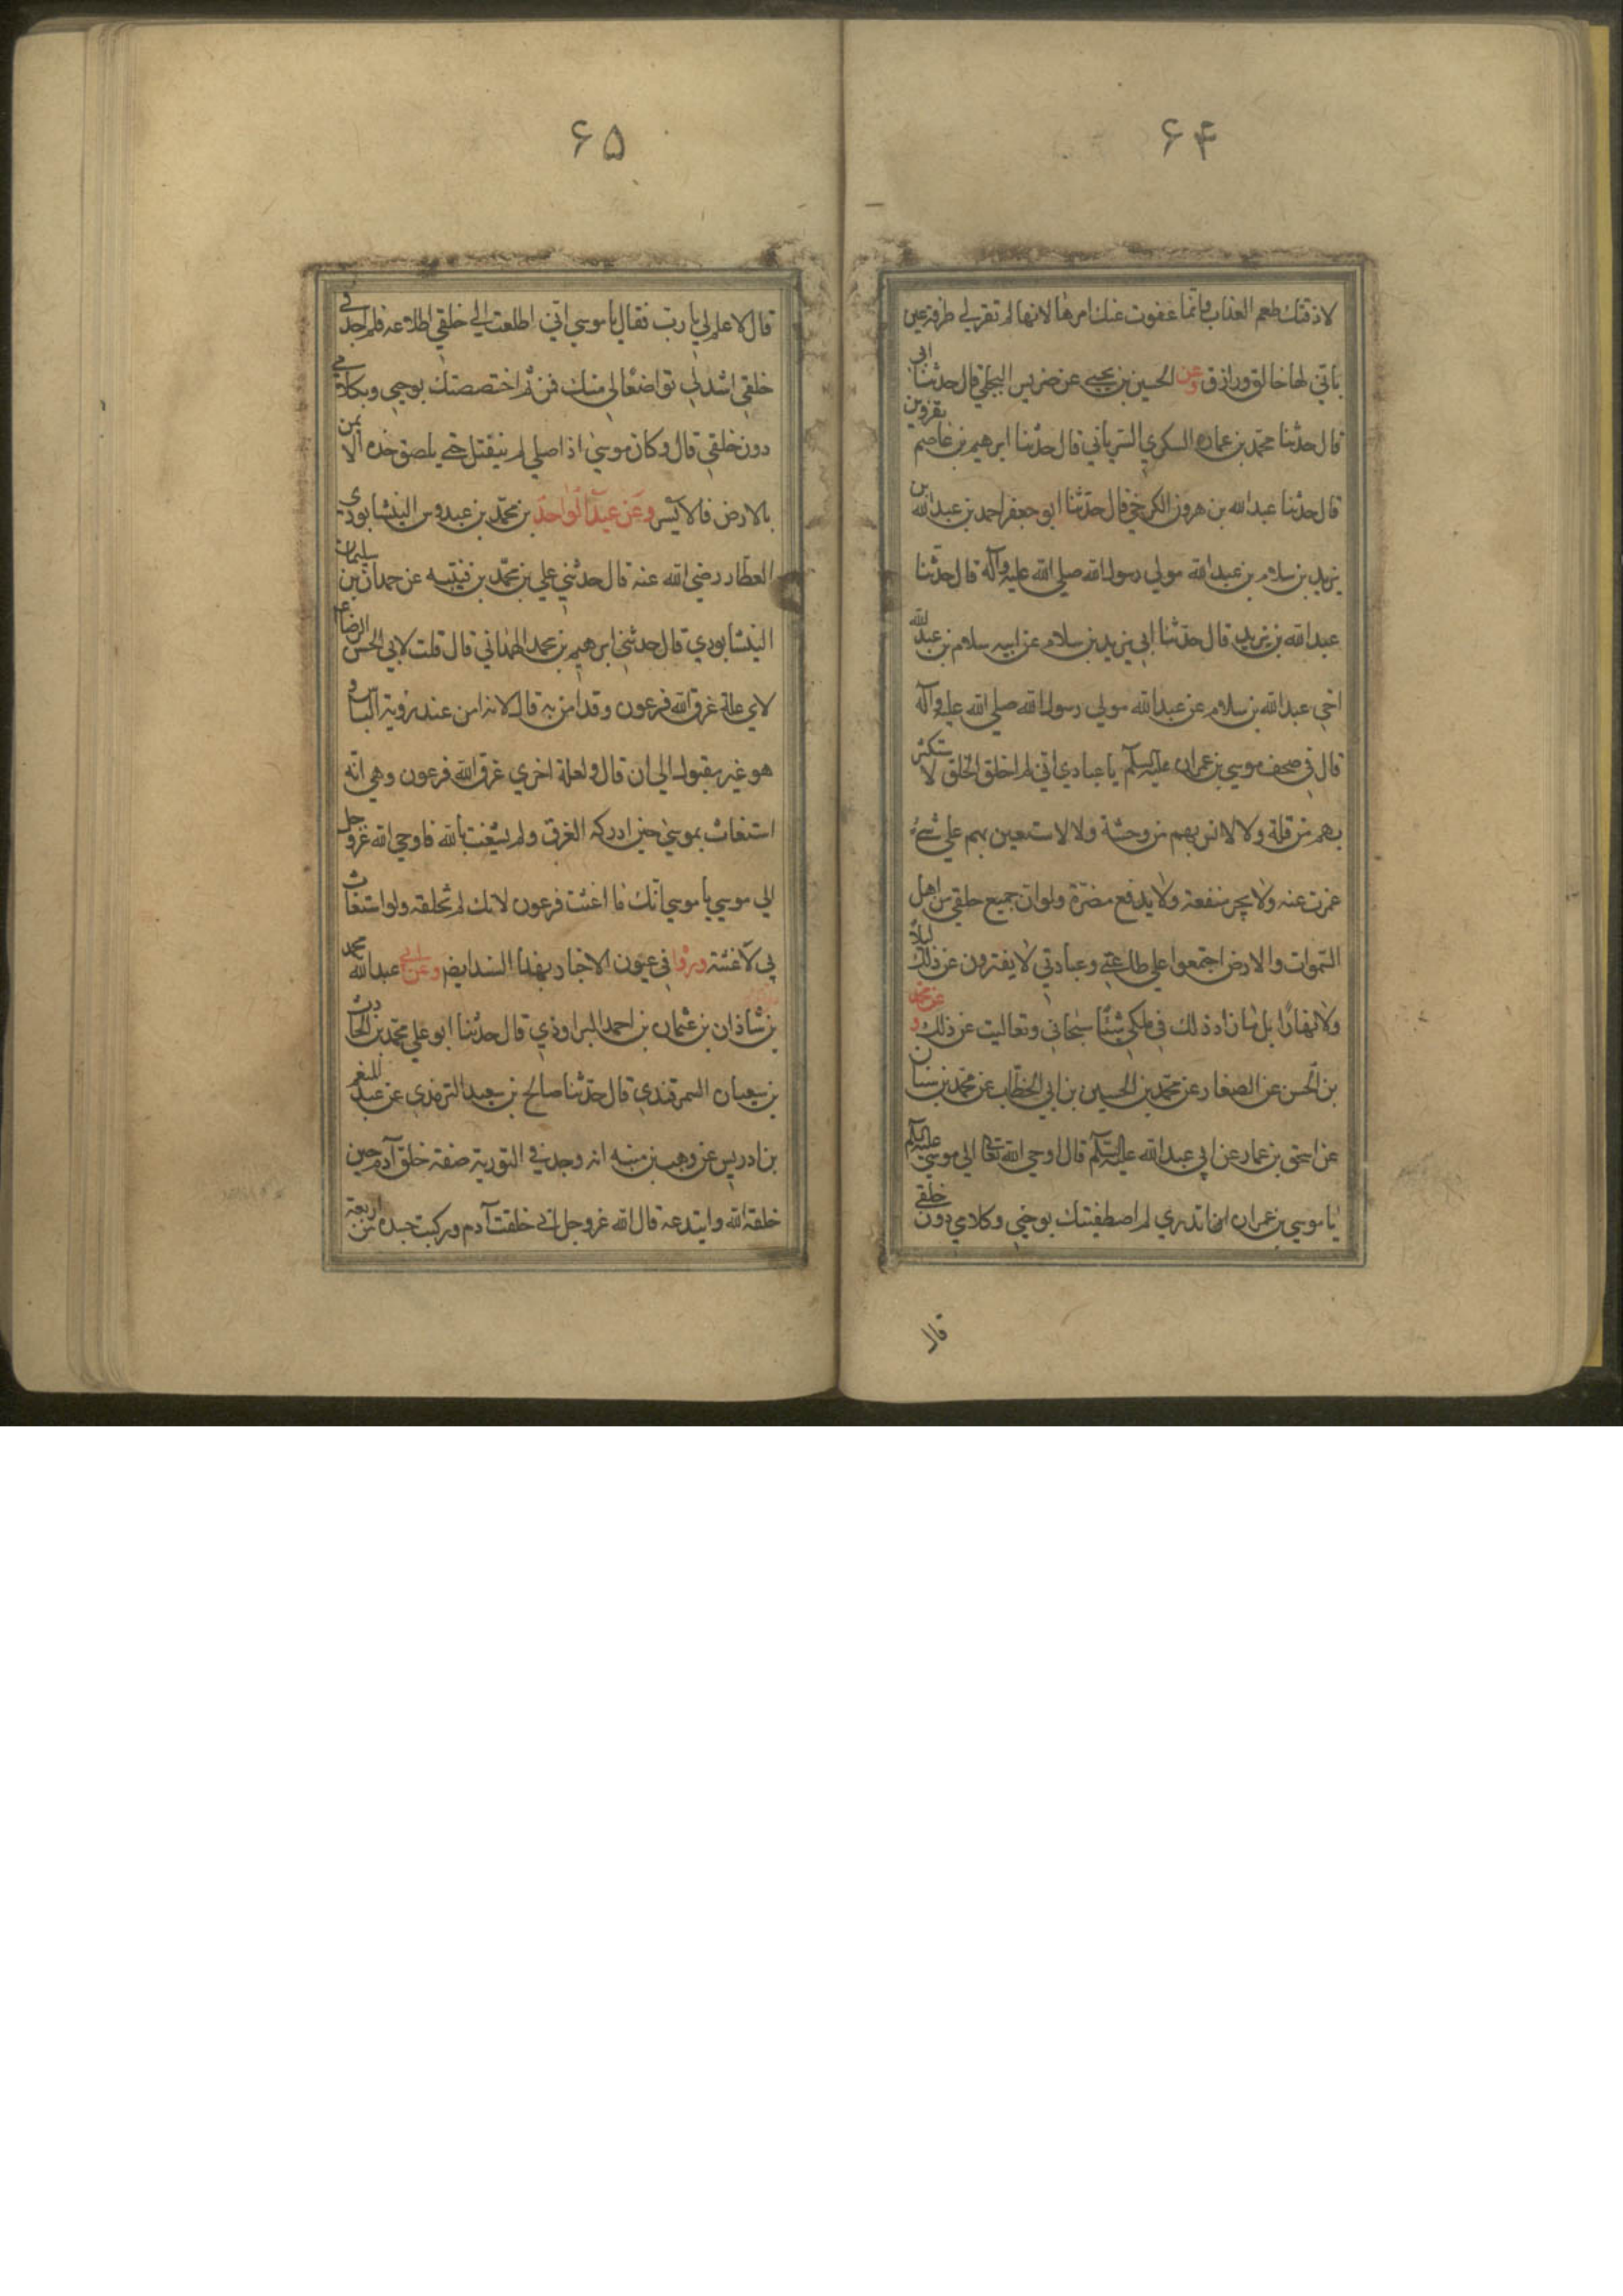 ۶۴
لاذقتك طعم العذاب وانّما عفوت عنك امرها لانها لم تقر لي طرفة عين
باني لها خالق ورازق وعن الحسين بن يحيى عن ضريس البجلي قال حدثنا ابي
قال حدثنا محمد بن عماره السكري السرياني قال حدثنا ابرهيم بن عاصم بقزوين
قال حدثنا عبدالله بن هرون الكرخي قال حدثنا ابو جعفر احمد بن عبدالله بن
يزيد بن سلام بن عبدالله مولي رسول الله صلي الله عليه وآله قال حدثنا
عبدالله بن يزيد قال حدثنا ابي يزيد بن سلام عن ابيه سلام بن عبدالله
اخي عبدالله بن سلام عن عبدالله مولي رسول الله صلي الله عليه وآله
قال في صحف موسي بن عمران عليه السلم يا عبادي اني لم اخلق الخلق لاستكثر
بهم من قلة ولا لانس بهم من وحشة ولا لاستعين بهم علي شئ
عجزت عنه ولا لجر منفعة ولا لدفع مضرّة ولو ان جميع خلقي من اهل
السّموات والارض اجتمعوا علي طاعتي وعبادتي لا يفترون عن ذلك ليلاً
ولا نهارًا بل ما زاد ذلك في ملكي شيئًا سبحاني وتعاليت عن ذلك وعن محمد
بن الحسن عن الصفار عن محمّد بن الحسين بن ابي الخطاب عن محمّد بن سنان
عن اسحق بن عمار عن ابي عبدالله عليه السّلم قال اوحي الله تعالي الي موسي عليه السلم
يا موسي بن عمران اما تدري لم اصطفيتك بوحيي وكلامي دون خلقي
قال
۶۵
قال لا علم لي يا رب فقال يا موسي اني اطلعت الي خلقي اطلاعه فلم اجد في
خلقي اشد لي تواضعًا لي منك فمن ثم اختصصتك بوحيي وبكلامي
دون خلقي قال وكان موسي اذا صلي لم ينفتل حتي يلصق خده الايمن
بالارض فالايسر وعن عبدالواحد بن محمّد بن عبدوس النيشابوري
العطّار رضي الله عنه قال حدثني علي بن محمّد بن قتيبه عن حمدان بن سليمان
النيشابوري قال حدثني ابرهيم بن محمد الهمداني قال قلت لابي الحسن الرضا ع
لاي علة غرق الله فرعون وقد امن به قال لانه امن عند رؤية الباس و
هو غير مقبول الي ان قال ولعلة اخري غرق الله فرعون وهي انه
استغاث بموسي حين ادركه الغرق ولم يستغث بالله فاوحي الله عزوجل
الي موسي يا موسي انك ما اغثت فرعون لانك لم تخلقه ولو استغاث
بي لاغثته ورواه في عيون الاخبار بهذا السند ايضا وعن ابي عبدالله محمد
بن شاذان بن عثمان بن احمد البراوذي قال حدثنا ابو علي محمّد بن الحارث
بن سفيان السمرقندي قال حدثنا صالح بن سعيد الترمذي عن عبد المنعم
بن ادريس عن وهب بن منبه انه وجد في التورية صفة خلق آدم حين
خلقه الله وابتدعه قال الله عزوجل اني خلقت آدم وركبت جسده من اربعة